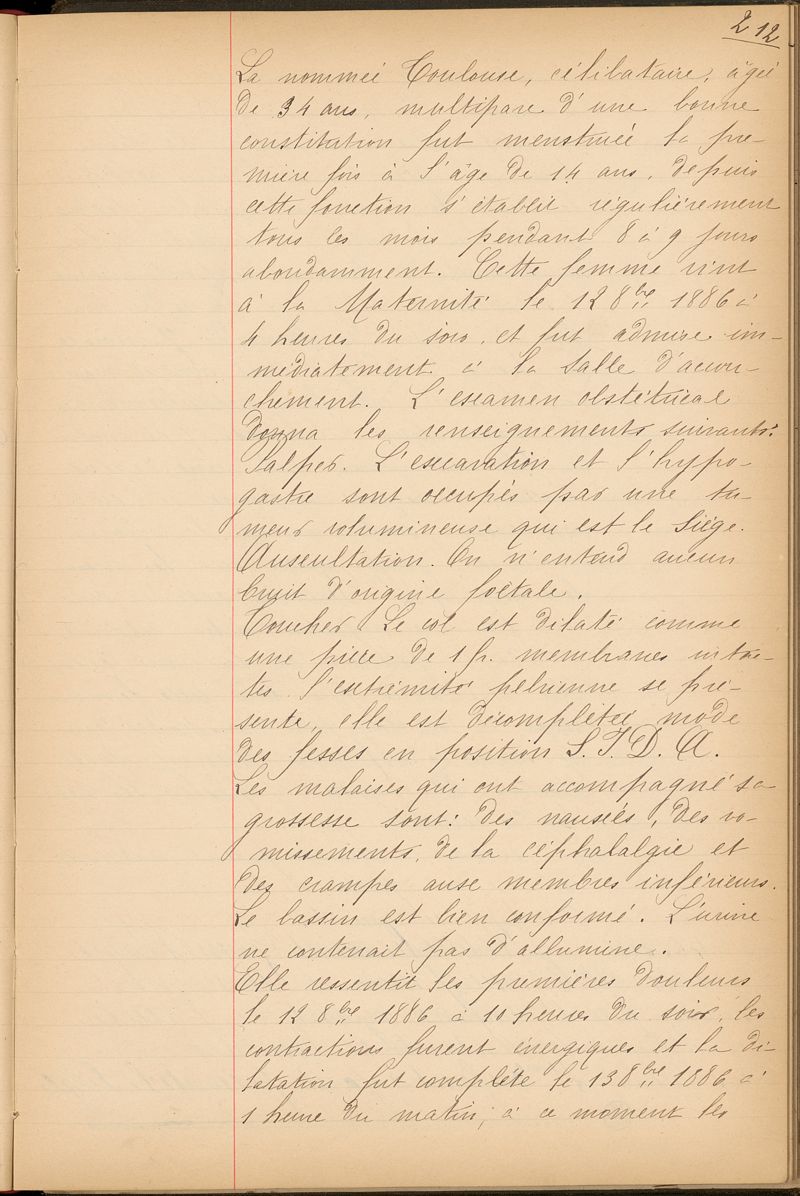 212
La nommée Toulouse, célibataire, âgée
de 34 ans, multipare d'une bonne
constitution fut menstruée la pre-
mière fois à l'âge de 14 ans, depuis
cette fonction s'établit régulièrement
tous les mois pendant 8 à 9 jours
abondamment. Cette femme vint
à la Maternité le 12 8bre 1886 à
4 heures du soir, et fut admise im-
médiatement à la Salle d'accou-
chement. L'examen obstétrical
donna les renseignements suivants:
Palper. L'excavation et l'hypo-
gastre sont occupés par une tu-
meur volumineuse qui est le Siège.
Auscultation. On n'entend aucun
bruit d'origine foetale.
Toucher Le col est dilaté comme
une pièce de 1 fr. membranes intac-
tes. l'extrémité pelvienne se pré-
sente, elle est décomplétée mode
des fesses en position S. I. D. A.
Les malaises qui ont accompagné sa
grossesse sont: des nausées, des vo-
missements, de la céphalalgie et
des crampes aux membres inférieurs.
Le bassin est bien conformé. L'urine
ne contenait pas d'albumine.
Elle ressentit les premières douleurs
le 12 8bre 1886 à 10 heures du soir, les
contractions furent énergiques et la di-
latation fut complète le 13 8bre 1886 à
1 heure du matin, à ce moment les